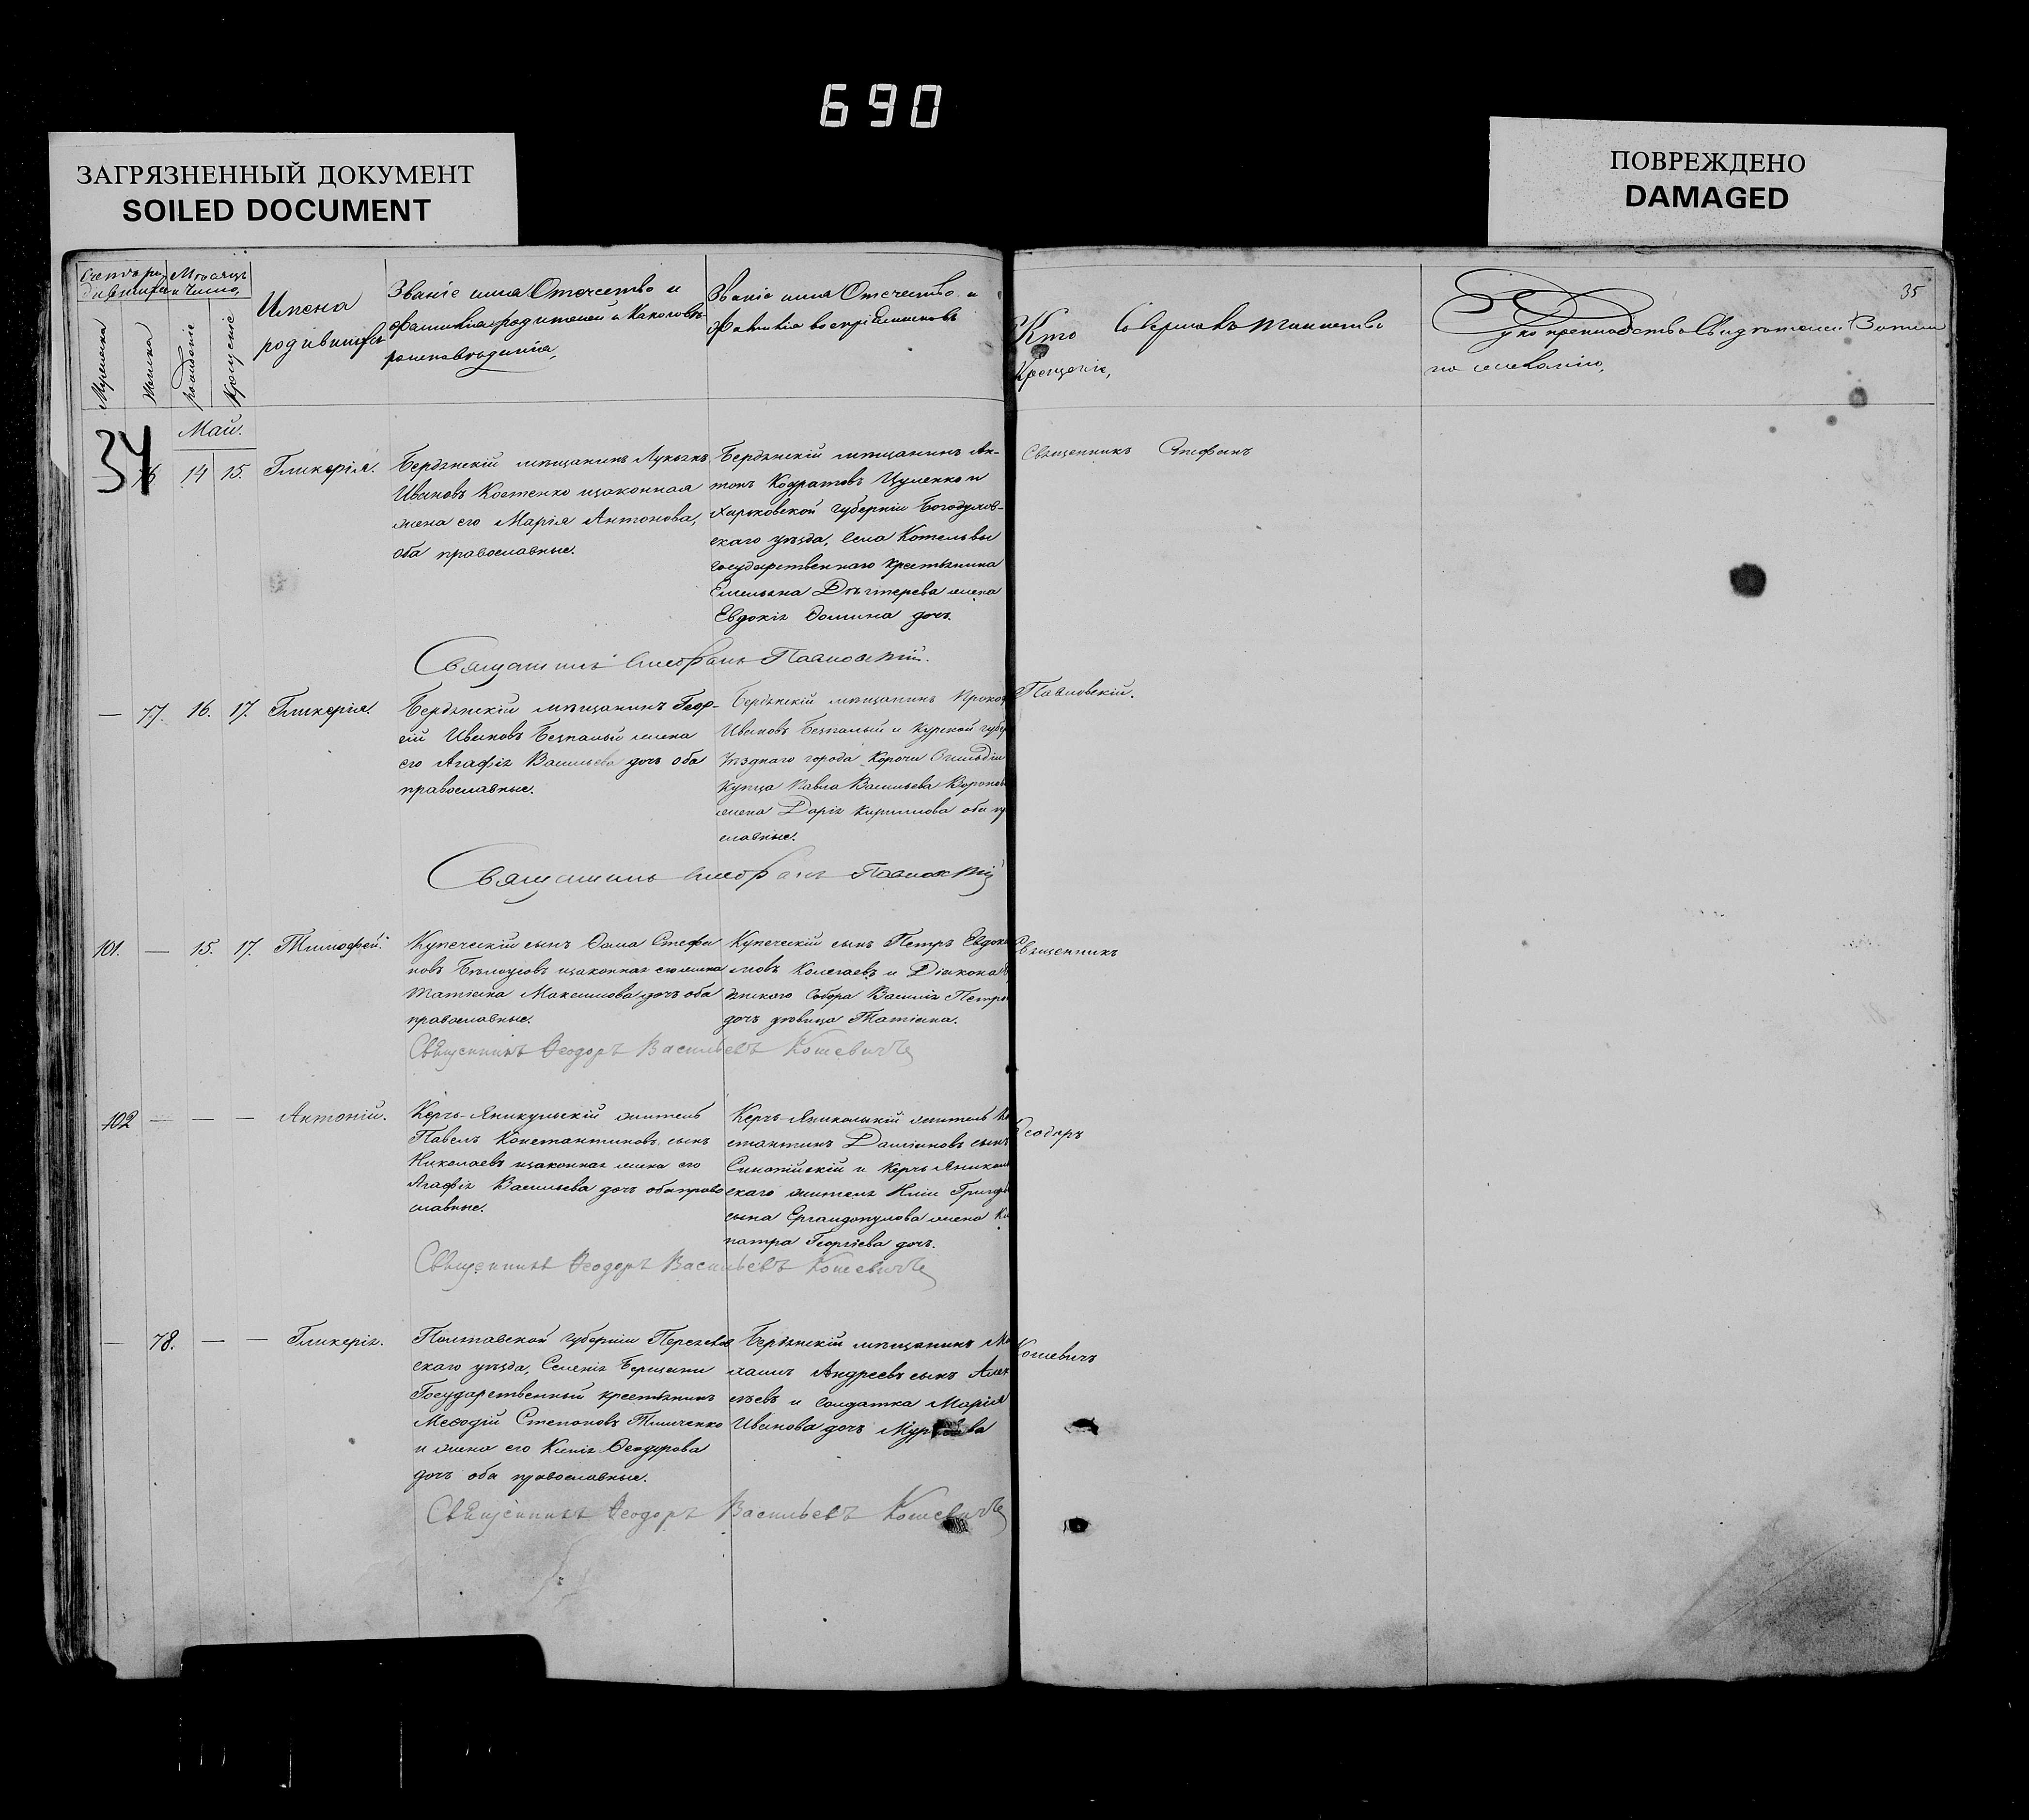 690
ЗАГРЯЗНЕННЫЙ ДОКУМЕНТ
SOILED DOCUMENT
ПОВРЕЖДЕНО
DAMAGED
35
Мѣсяцъ
и число,
Рожденіе
Крещеніе
Имена
родившихся
Званіе имя Отечество и
фамилія родителей и какого вѣ-
роисповѣданія,
Званіе имя Отечество и
Фамилія воспріемниковъ
Кто совершалъ таинство
Крещенія,
по желанію,
34
Май.
76 14 15. Гликерія.
Бердянскій мѣщанинъ
Ивановъ Костенко и законная
жена его Марія Антонова,
оба православные.
Бердянскій мѣщанинъ Ан-
тонъ Кодратовъ Цуленко и
Харьковской губерніи Богодухов-
скаго уѣзда, села Котельвы
государственнаго крестьянина
Емельяна Дегтерева жена
Евдокія Фомина дочь.
Священникъ Стефанъ
Священникъ Стефанъ Павловскій.
— 77. 16. 17. Гликерія.
Бердянскій мѣщанинъ Геор-
гій Ивановъ Безпалый жена
его Агафія Васильева дочь оба
православные.
Бердянскій мѣщанинъ Прокоф
Ивановъ Безпалый и Курской губер
уѣзднаго города Корочи
купца Павла Васильева Воронов
жена Дарія Кириллова оба пр
славные.
Павловскій.
Священникъ Стефанъ Павловскій
101. — 15. 17. Тимофей.
Купеческій сынъ Фома Стефа
новъ Бѣлоусовъ и законная его жена
Татіана Максимова дочь оба
православные.
Купеческій сынъ Петръ Евдоки
мовъ Колегаевъ и Діакона
янскаго Собора Василія Петро
дочь дѣвица Татіана.
Священникъ
Священникъ Ѳеодоръ Васильевъ Кошевичъ
102 — — — Антоній.
Керчь-Яникульскій житель
Павелъ Константиновъ сынъ
Николаевъ и законная жена его
Агафія Васильева дочь оба право
славные.
Керчь-Яникольскій житель Ко
стантинъ Даміановъ сынъ
Синопійскій и Керчь Яниколь
скаго жителя Иліи Григор
сына Ергандопулова жена Кл
патра Георгіева дочь.
Ѳеодоръ
Священникъ Ѳеодоръ Васильевъ Кошевичъ
— 78. — — Гликерія.
Полтавской губерніи
скаго уѣзда, Селенія
Государственный крестьянинъ
Меѳодій Степановъ Тимченко
и жена его Ксенія Ѳеодорова
дочь оба православные.
Бердянскій мѣщанинъ Ми
хаилъ Андреевъ сынъ Алек
сѣевъ и солдатка Марія
Иванова дочь
Кошевичъ
Священникъ Ѳеодоръ Васильевъ Кошевичъ